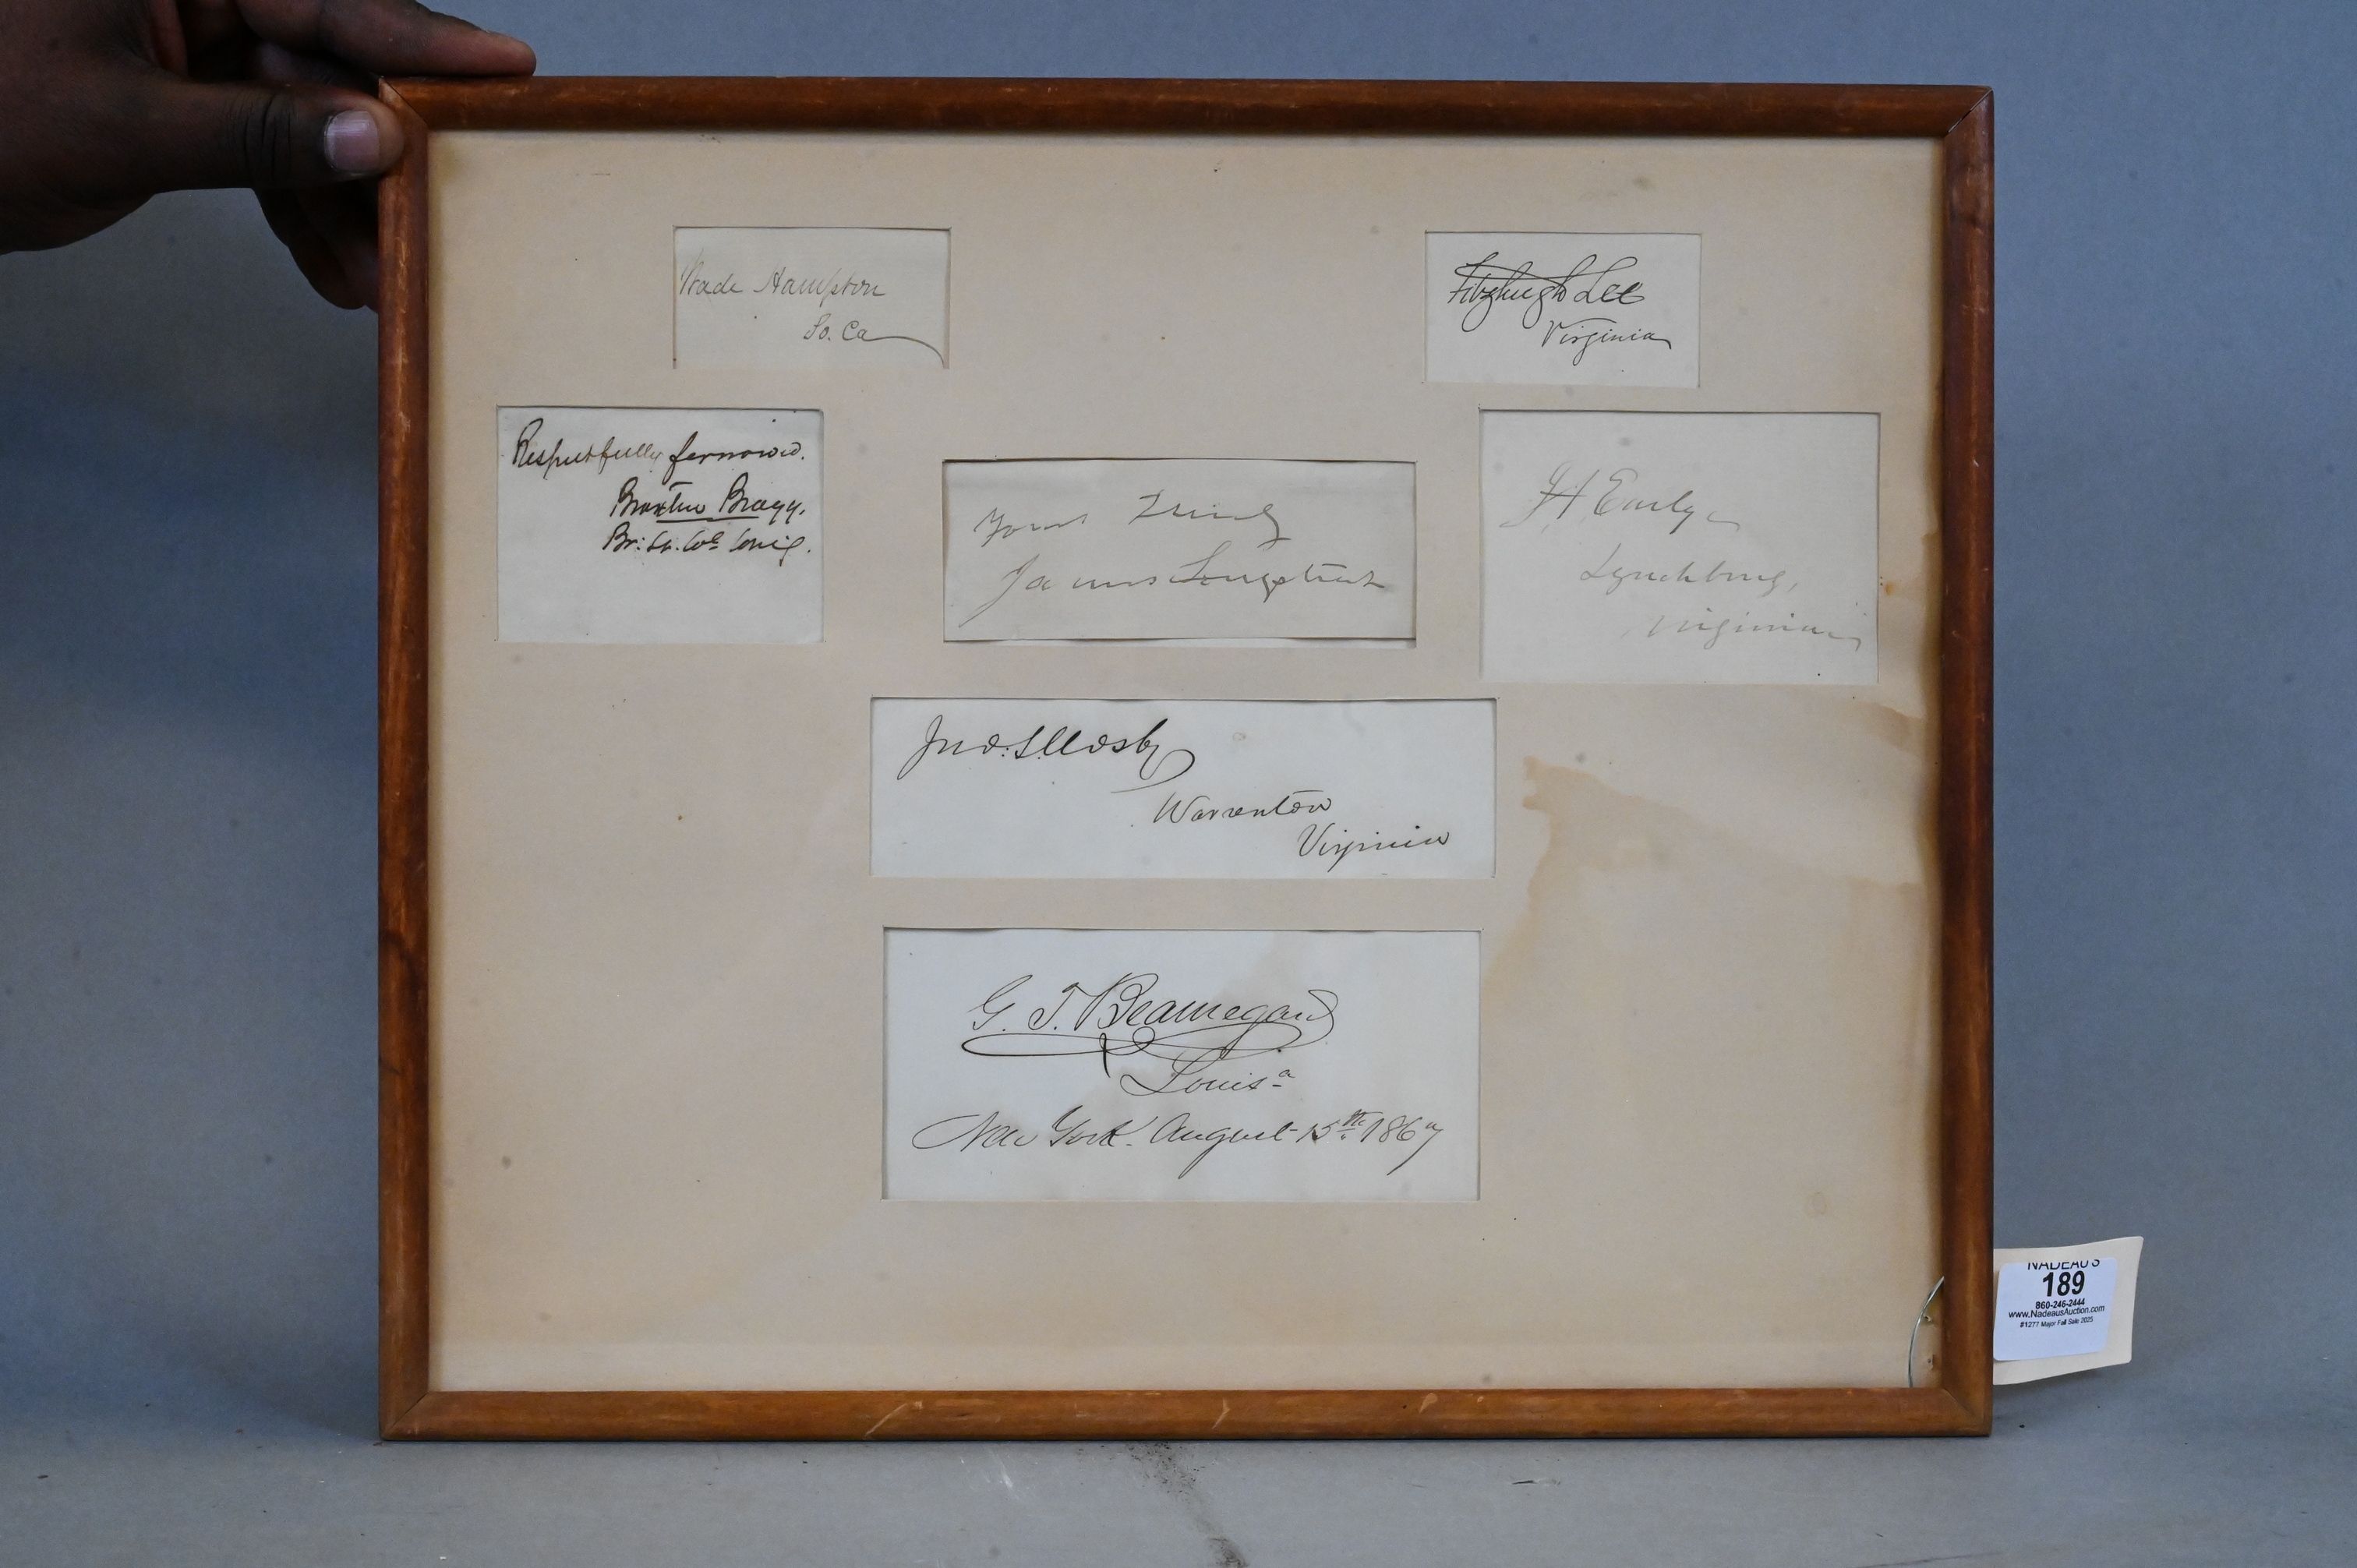 Wade Hampton
So. Ca
Fitzhugh Lee
Virginia
Respectfully forward.
Braxton Bragg.
Yours Truly
James Longstreet
JA Early
Lynchburg,
Virginia
Jno: S. Mosby
Warrenton
Virginia
G. T. Beauregard
Louisa
New York. August 15th 1867
NADEAU'S
189
860-246-2444
www.NadeausAuction.com
#1277 Major Fall Sale 2025